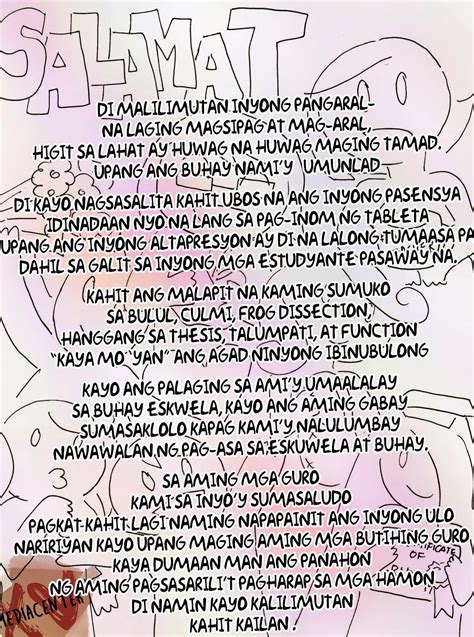 SALAMAT
DI MALILIMUTAN INYONG PANGARAL-
NA LAGING MAGSIPAG AT MAG-ARAL,
HIGIT SA LAHAT AY HUWAG NA HUWAG MAGING TAMAD.
UPANG ANG BUHAY NAMI'Y UMUNLAD
DI KAYO NAGSASALITA KAHIT UBOS NA ANG INYONG PASENSYA
IDINADAAN NYO NA LANG SA PAG-INOM NG TABLETA
UPANG ANG INYONG ALTAPRESYON AY DI NA LALONG TUMAASA PA
DAHIL SA GALIT SA INYONG MGA ESTUDYANTE PASAWAY NA.
KAHIT ANG MALAPIT NA KAMING SUMUKO
SA BULUL, CULMI, FROG DISSECTION,
HANGGANG SA THESIS, TALUMPATI, AT FUNCTION
"KAYA MO 'YAN" ANG AGAD NINYONG IBINUBULONG
KAYO ANG PALAGING SA AMI'Y UMAALALAY
SA BUHAY ESKWELA, KAYO ANG AMING GABAY
SUMASAKLOLO KAPAG KAMI'Y NALULUMBAY
NAWAWALAN NG PAG-ASA SA ESKUWELA AT BUHAY.
SA AMING MGA GURO
KAMI SA INYO'Y SUMASALUDO
PAGKAT KAHIT LAGI NAMING NAPAPAINIT ANG INYONG ULO
NARIRIYAN KAYO UPANG MAGING AMING MGA BUTIHING GURO
KAYA DUMAAN MAN ANG PANAHON
NG AMING PAGSASARILI'T PAGHARAP SA MGA HAMON
DI NAMIN KAYO KALILIMUTAN
KAHIT KAILAN!
OF
MEDIACENTER